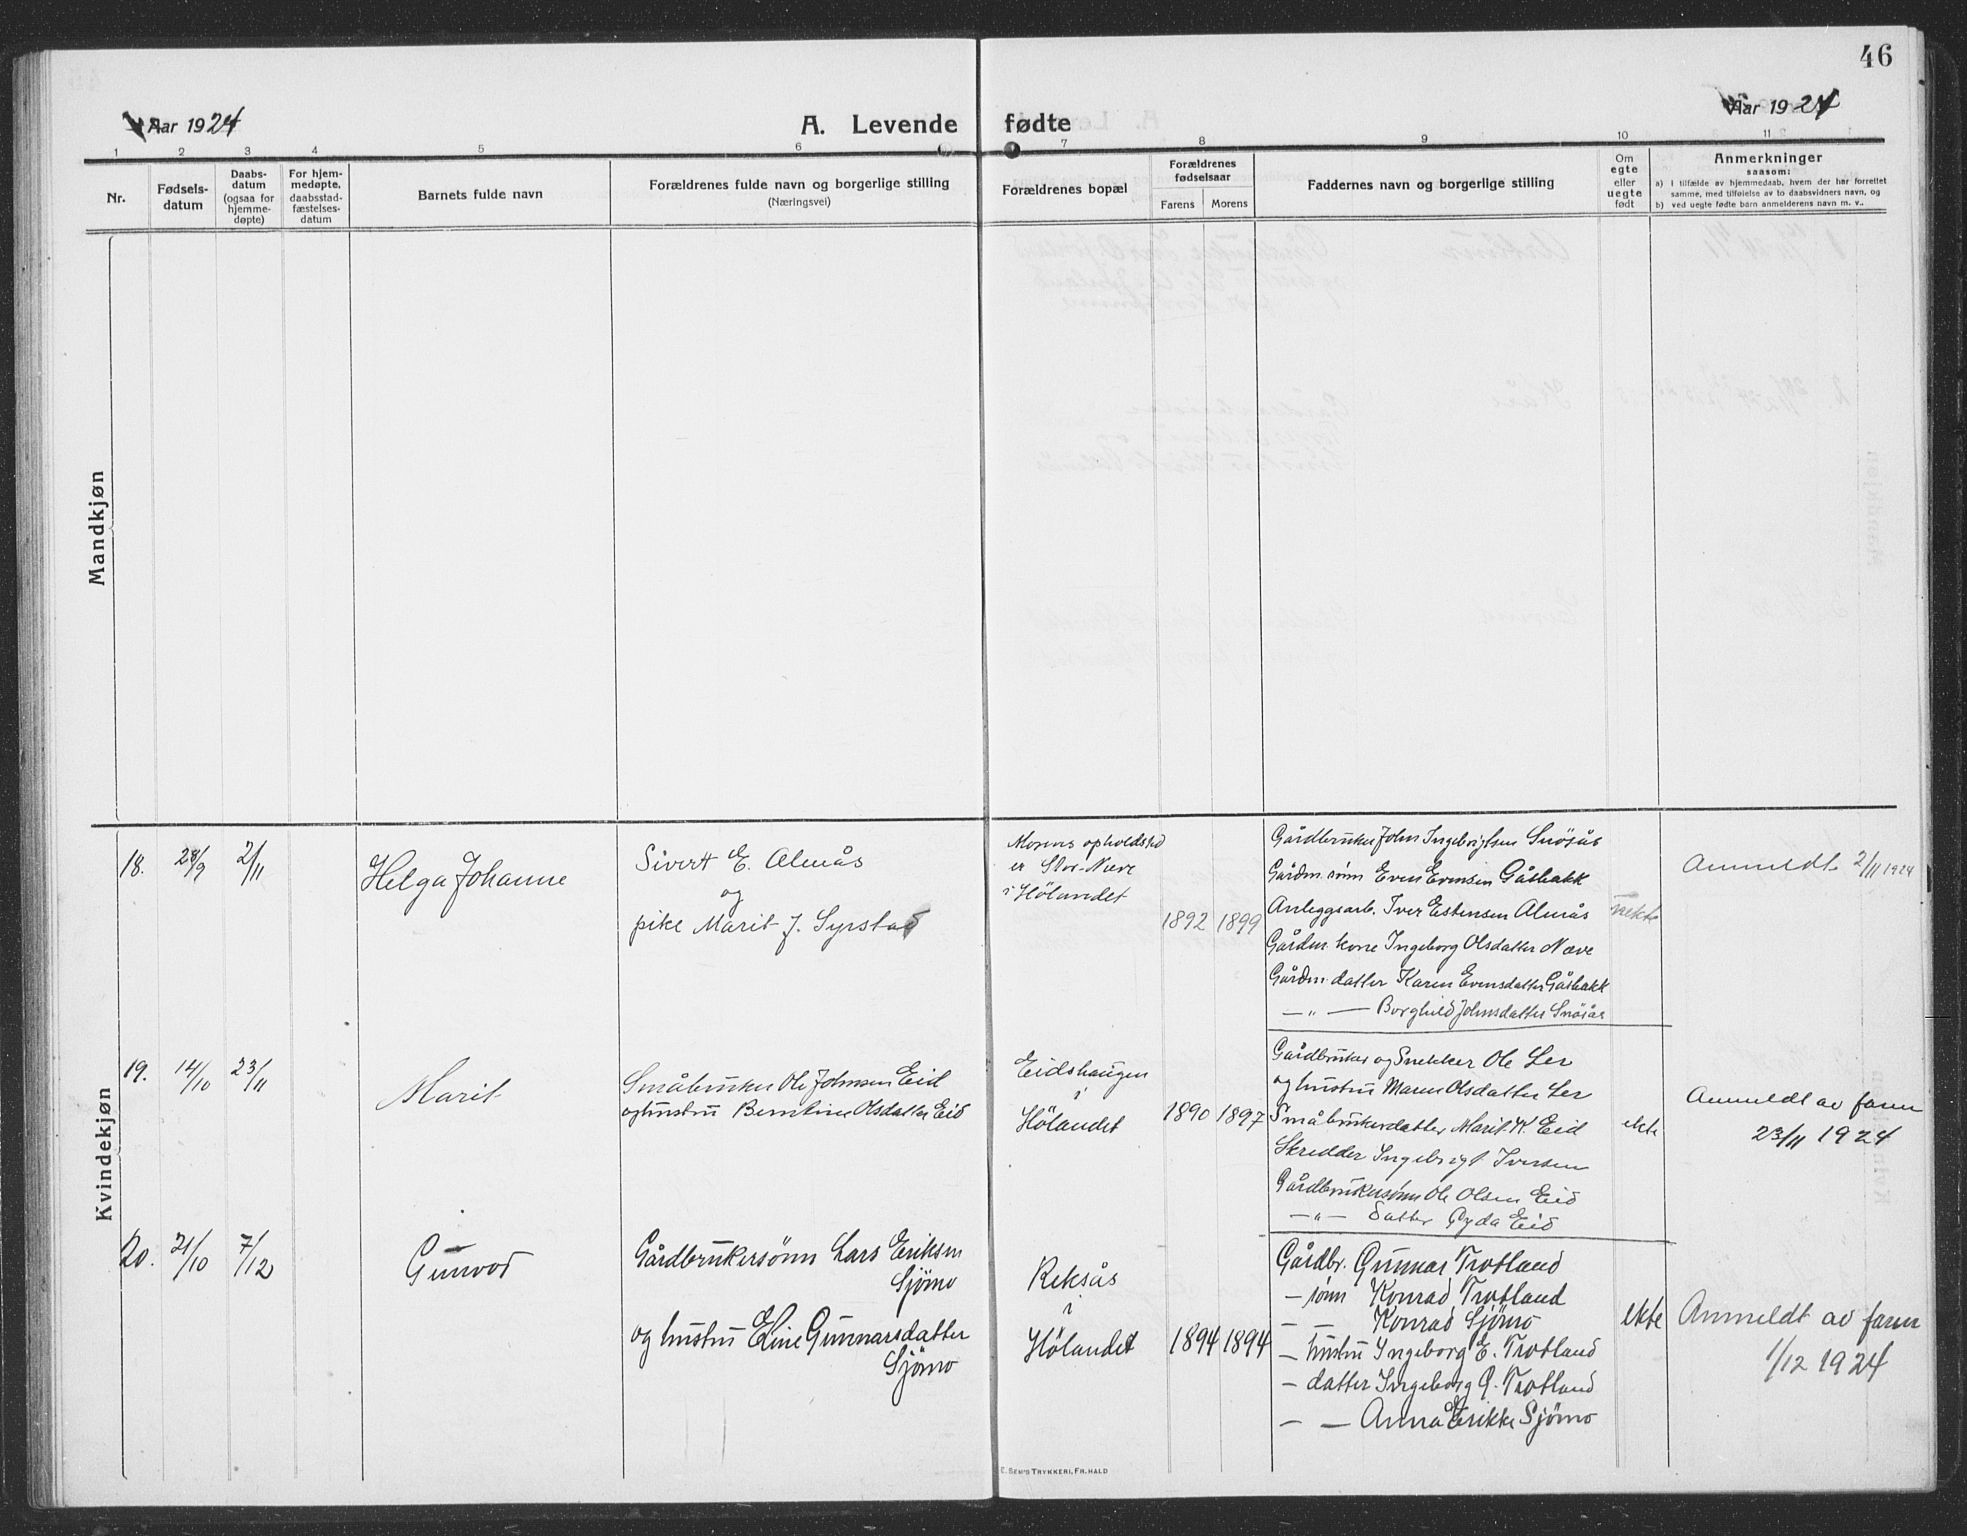 46
Aar 1924
A. Levende fødte
Aar 1924
1 2 3 4 5 6 7 8 9 10 11
Nr.
Fødsels-
datum
Daabs-
datum
(ogsaa for
hjemme-
døpte)
For hjem-
medøpte,
daabsstad-
fæstelses-
datum
Barnets fulde navn
Forældrenes fulde navn og borgerlige stilling
(Næringsvei)
Forældrenes bopæl
Forældrenes
fødselsaar
Farens Morens
Faddernes navn og borgerlige stilling
Om
egte
eller
uegte
født
Anmerkninger
saasom:
a) I tilfælde av hjemmedaab, hvem der har forrettet
samme, med tilføielse av to daabsvidners navn, og
b) ved uegte fødte barn anmelderens navn m. v..
Mandkjøn
Kvindekjøn
18. 28/9 2/11
Helga Johanne
Sivert E. Almås
og
pike Marit J. Syrstad
Morens opholdssted
er Stor-Næve
i Hölandet
1892 1899
Gårdbruker John Ingebrigtsen Snösås
Gårdm. sönn Even Evensen Gåsbakk
Anleggsarb. Iver Estensen Almås
Gårdm. kone Ingeborg Olsdatter Næve
Gårdm. datter Karen Evensdatter Gåsbakk
— „ — Borghild Johnsdatter Snösås
uekte
Anmeldt 2/11 1924
19. 14/10 23/11
Marit
Småbruker Ole Johnsen Eid
og hustru Berntine Olsdatter Eid
Eidshaugen
i
Hölandet
1890 1897
Gårdbruker og Snekker Ole Ler
og hustru Maren Olsdatter Ler
Småbrukerdatter Marit K. Eid
Skredder Ingebrigt Iversen
Gårdbrukersønn Ole Olsen Eid
— „ — datter Gyda Eid
ekte
Anmeldt av faren
23/11 1924
20. 21/10 7/12
Gunvor
Gårdbrukersönn Lars Eriksen
Sjömo
og hustru Eline Gunnarsdatter
Sjömo
Reksås
i
Hölandet
1894 1894
Gårdbr. Gunnar Trotland
— sönn Konrad Trotland
— — Konrad Sjömo
— hustru Ingeborg E. Trotland
— datter Ingeborg G. Trotland
— — Anna Erikke Sjömo
ekte
Anmeldt av faren
1/12 1924
E. SEM'S TRYKKERI, FR.HALD